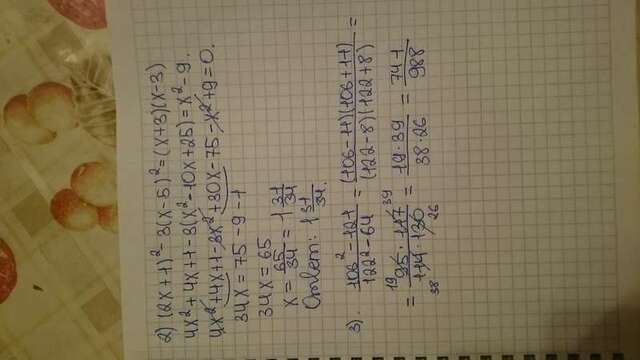 2) (2x+1)² - 3(x-5)² = (x+3)(x-3)
4x²+4x+1-3(x²-10x+25) = x²-9.
4x²+4x+1-3x²+30x-75-x²+9=0.
34x = 75-9-1
34x = 65
x = 65/34 = 1 31/34
Ответ: 1 31/34.
3). (106²-121)/(122²-64) = ((106-11)(106+11))/((122-8)(122+8)) =
= (95·117)/(114·130) = (19·39)/(38·26) = 741/988
19 39
38 26